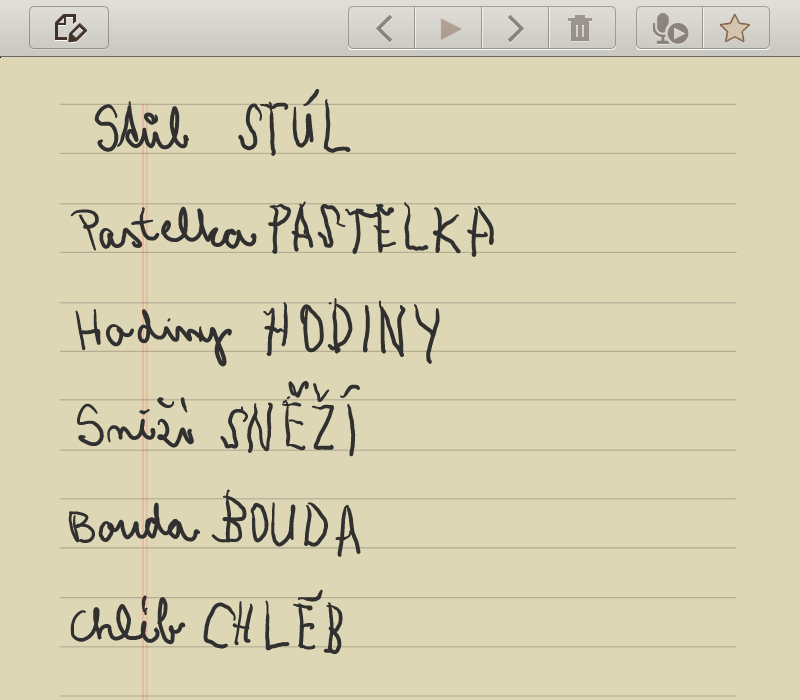 Stůl STÚL
Pastelka PASTELKA
Hodiny HODINY
Sniží SNĚŽÍ
Bouda BOUDA
Chléb CHLÉB